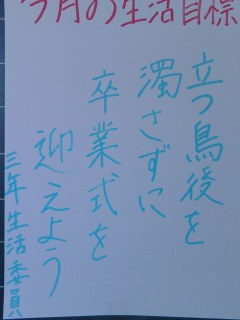 今月の生活目標
立つ鳥後を
濁さずに
卒業式を
迎えよう
三年生活委員